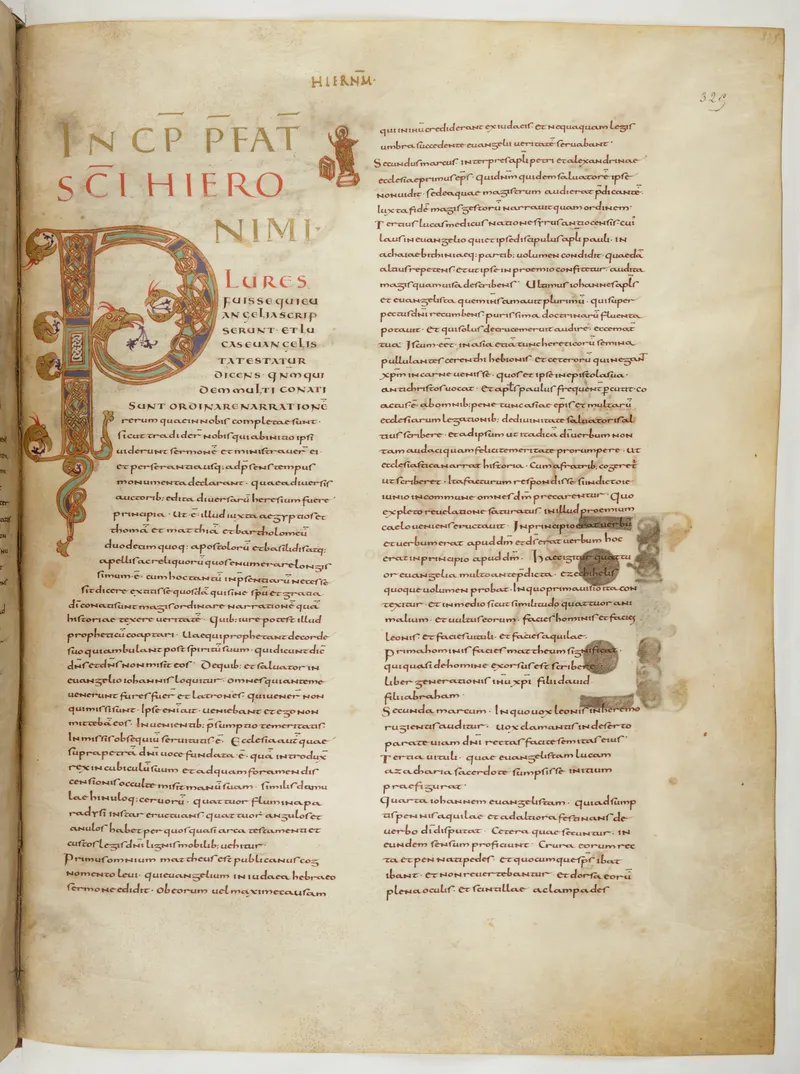 HIERNM·
329
INCP PFAT
SCI HIERO
NIMI·
PLURES
FUISSE QUI EU
ANGELIA SCRIP
SERUNT· ET LU
CAS EUANGELIS
TA TESTATUR
DICENS· QNM QUI
DEM MULTI CONATI
SUNT ORDINARE NARRATIONE
rerum quae in nobis completae sunt·
sicut tradider nobis qui ab initio ipsi
uiderunt sermone et ministrauer ei·
et perseuerantia usq; ad psens tempus
monumenta declarant· quae a diuersis
auctorib; edita diuersaru heresium fuere
principia· Ut e illud iuxta aegyptios et
thoma et matthia et bartholomeu
duodecim quoq; apostoloru et basilidis atq;
apellis ac reliquoru quos enumerare longis
simum e· cum hoc tantu in psentiaru necesse
sit dicere extitisse quosda qui sine spu et gratia
di conati sunt magis ordinare narratione qua
historiae texere ueritate· Quib; iure potest illud
propheticu coaptari· Uae qui prophetant de corde
suo qui ambulant post spiritu suum· qui dicunt dic
dns et dns non misit eos· De quib; et saluator in
euangelio iohannis loquitur· omnes qui ante me
uenerunt fures fuer et latrones· qui uener non
qui missi sunt· Ipse eni ait· ueniebant et ego non
mitteba eos· In uenientib; psumptio temeritatis·
In missis obsequiu seruitutis e· Ecclesia aut quae
supra petra dni uoce fundata e· qua introdux
rex in cubiculu suum et ad quam foramen dis
censionis occulte misit manu suam· similis damu
lae hinuloq; ceruoru· quattuor flumina pa
radysi instar eructuans quattuor angulos et
anulos habet per quos quasi arca testamenti et
custos legis dni lignis mobilib; uehitur·
Primus omnium mattheus est publicanus cog
nomento leui· qui euangelium in iudaea hebraeo
sermone edidit· Ob eorum uel maxime causam
qui in ihu crediderant ex iudaeis· Et nequaquam legis
umbra succedente euangelii ueritate seruabant·
Secundus marcus interpres apli petri et alexandrinae
ecclesiae primus eps· qui dnm quidem saluatore ipse
non uidit· sed ea quae magistrum audierat pdicante
iuxta fide magis gestoru narrauit quam ordinem·
Tertius lucas medicus natione syrus antiocensis cui
laus in euangelio qui et ipse discipulus apli pauli· in
achaiae bithiniaeq; partib; uolumen condidit· quaeda
altius repetens et ut ipse in proemio confitetur· audita
magis quam uisa describens· Ultimus iohannes apls
et euangelista quem ihs amauit plurimu· qui super
pectus dni recumbens purissima doctrinaru fluenta
potauit· Et qui solus de cruce meruit audire· ecce mat
tua· Is cum eet· in asia et ia tunc hereticoru semina
pullularent cerenthi hebionis· Et ceteroru qui negant
xpm in carne uenisse· quos et ipse in epistola sua·
antichristos uocat· Et apls paulus frequent pcutit co
actus e ab omnib; pene tunc asiae epis et multaru
ecclesiarum legationib; de diuinitate saluatoris al
tius scribere· Et ad ipsum ut ita dica di uerbum non
tam audaci quam felici temeritate prorumpere· Ut
ecclesiastica narrat historia· Cum a fratrib; cogeret
ut scriberet· Ita facturum respondisse si indicto ie
iunio in commune omnes dm precarentur· Quo
expleto reuelatione saturatus in illud proemium
caelo ueniens eructauit· In principio erat uerbu
et uerbum erat apud dm· et ds erat uerbum hoc
erat in principio apud dm· Haec igitur quattu
or euangelia multo ante pdicta· ezechihelis
quoque uolumen probat· In quo prima uisio ita con
texitur· Et in medio sicut similitudo quattuor ani
malium· Et uultus eorum· facies hominis et facies
leonis et facies uituli· et facies aquilae·
Prima hominis facies mattheum significat·
qui quasi de homine exorsus est scribere
liber generationis ihu xpi· filii dauid
filii abraham·
Secunda marcum· In quo uox leonis in heremo
rugientis auditur· Uox clamantis in deserto
parate uiam dni rectas facite semitas eius·
Tertia uituli· quae euangelistam lucam
a zacharia sacerdote sumpsisse initium
praefigurat·
Quarta iohannem euangelistam· quia adsump
tis pennis aquilae et ad altiora festinans de
uerbo di disputat· Cetera quae secuntur· in
eundem sensum proficiunt· Crura eorum rec
ta et pennati pedes· Et quocumque sps ibat
ibant· Et non reuertebantur· Et dorsa eoru
plena oculis· Et scintillae ac lampades